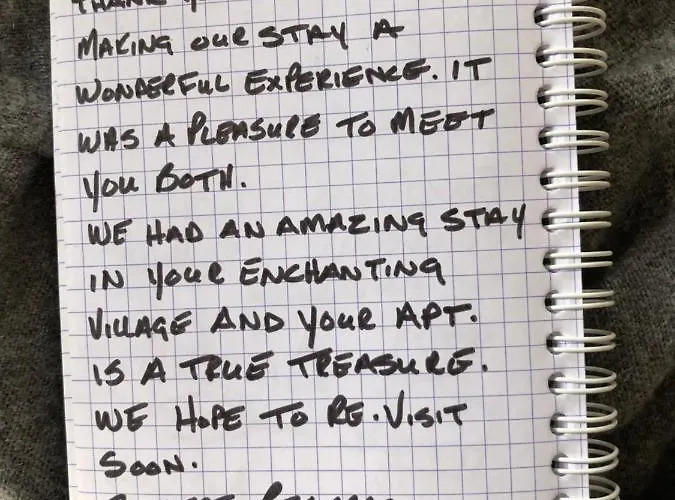 THANK
MAKING OUR STAY A
WONDERFUL EXPERIENCE. IT
WAS A PLEASURE TO MEET
YOU BOTH.
WE HAD AN AMAZING STAY
IN YOUR ENCHANTING
VILLAGE AND YOUR APT.
IS A TRUE TREASURE.
WE HOPE TO RE.VISIT
SOON.